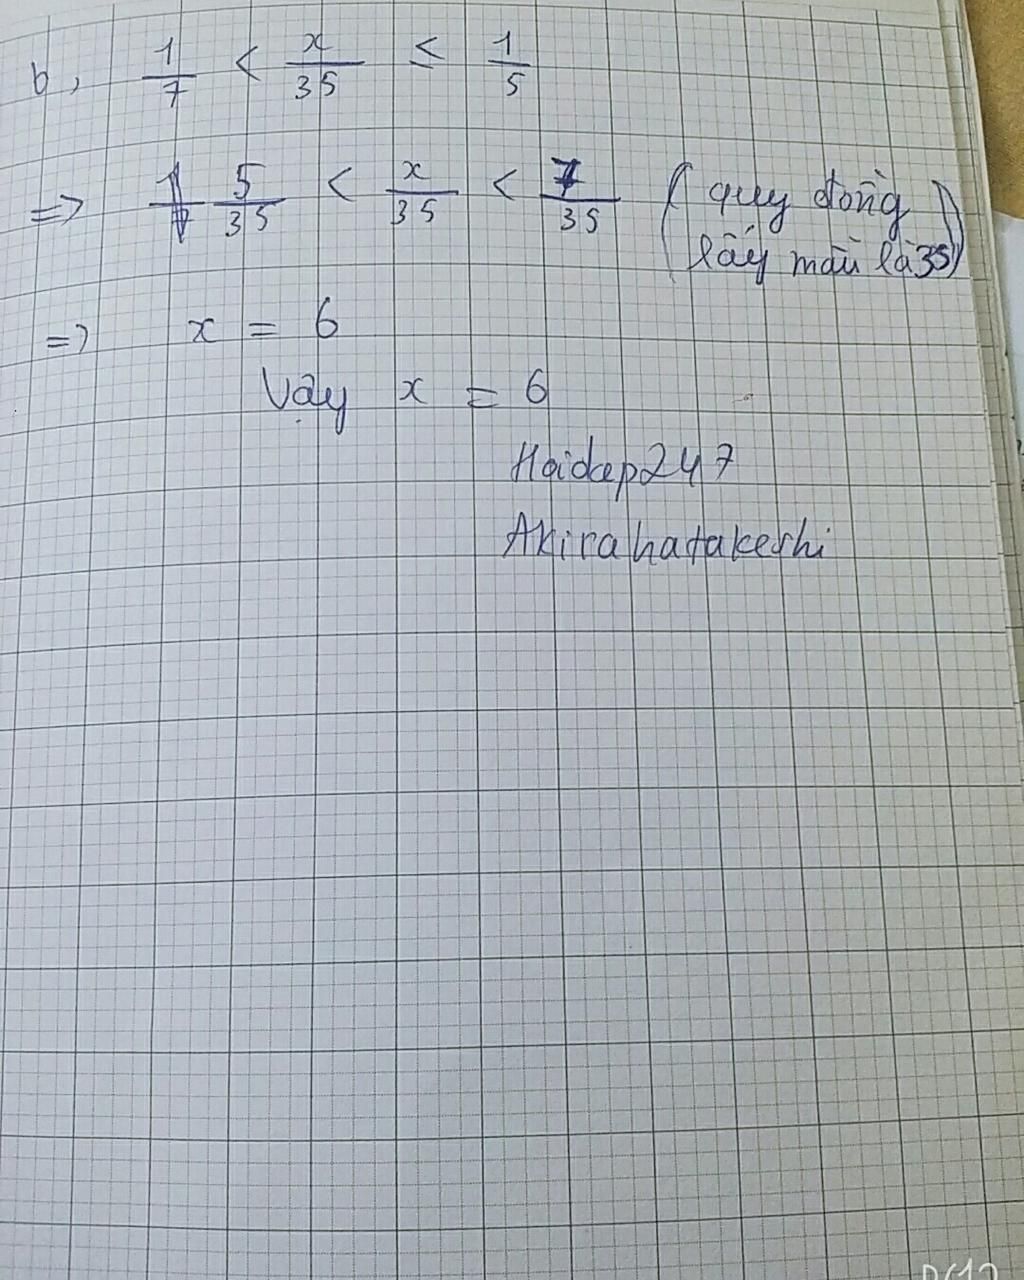 b, 1/7 < x/35 ≤ 1/5
=> 5/35 < x/35 < 7/35 (quy đồng
lấy mẫu là 35)
=> x = 6
Vậy x = 6
Hoidap247
Akirahatakeshi